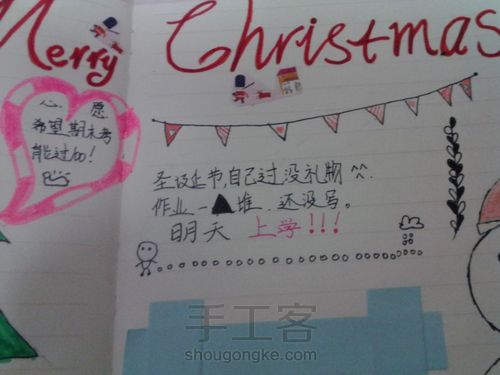 Merry Christmas
心愿
希望期末考
能过100!
圣诞节,自己过没礼物^^.
作业一堆,还没写。
明天 上学!!!
手工客
shougongke.com